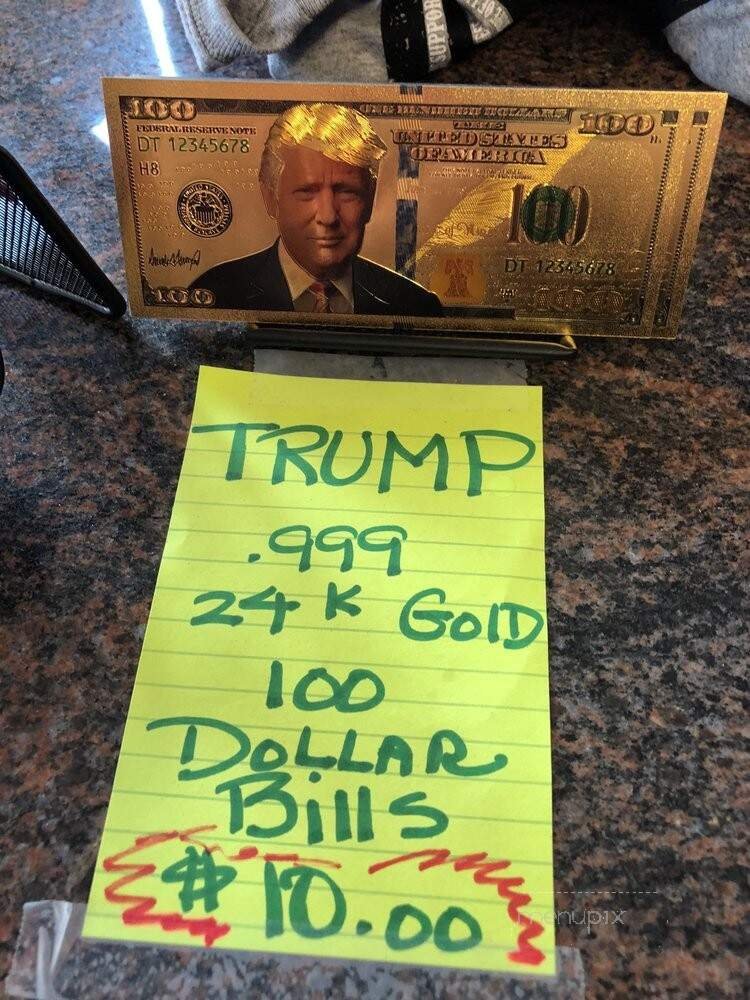 100
ONE HUNDRED DOLLARS
100
FEDERAL RESERVE NOTE
THE
UNITED STATES
OF AMERICA
DT 12345678
H8
100
DT 12345678
100
100
TRUMP
.999
24 K GOLD
100
DOLLAR
Bills
$10.00
menupix